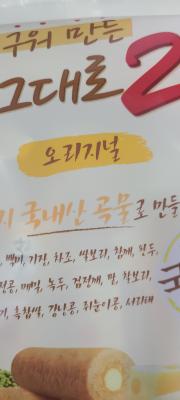 구워 만든
그대로 2
오리지널
지 국내산 곡물로 만들
백미, 기장, 차조, 쌀보리, 참깨, 완두,
메밀, 녹두, 검정깨, 밀, 찰보리,
흑찹쌀, 강낭콩, 쥐눈이콩, 서리태